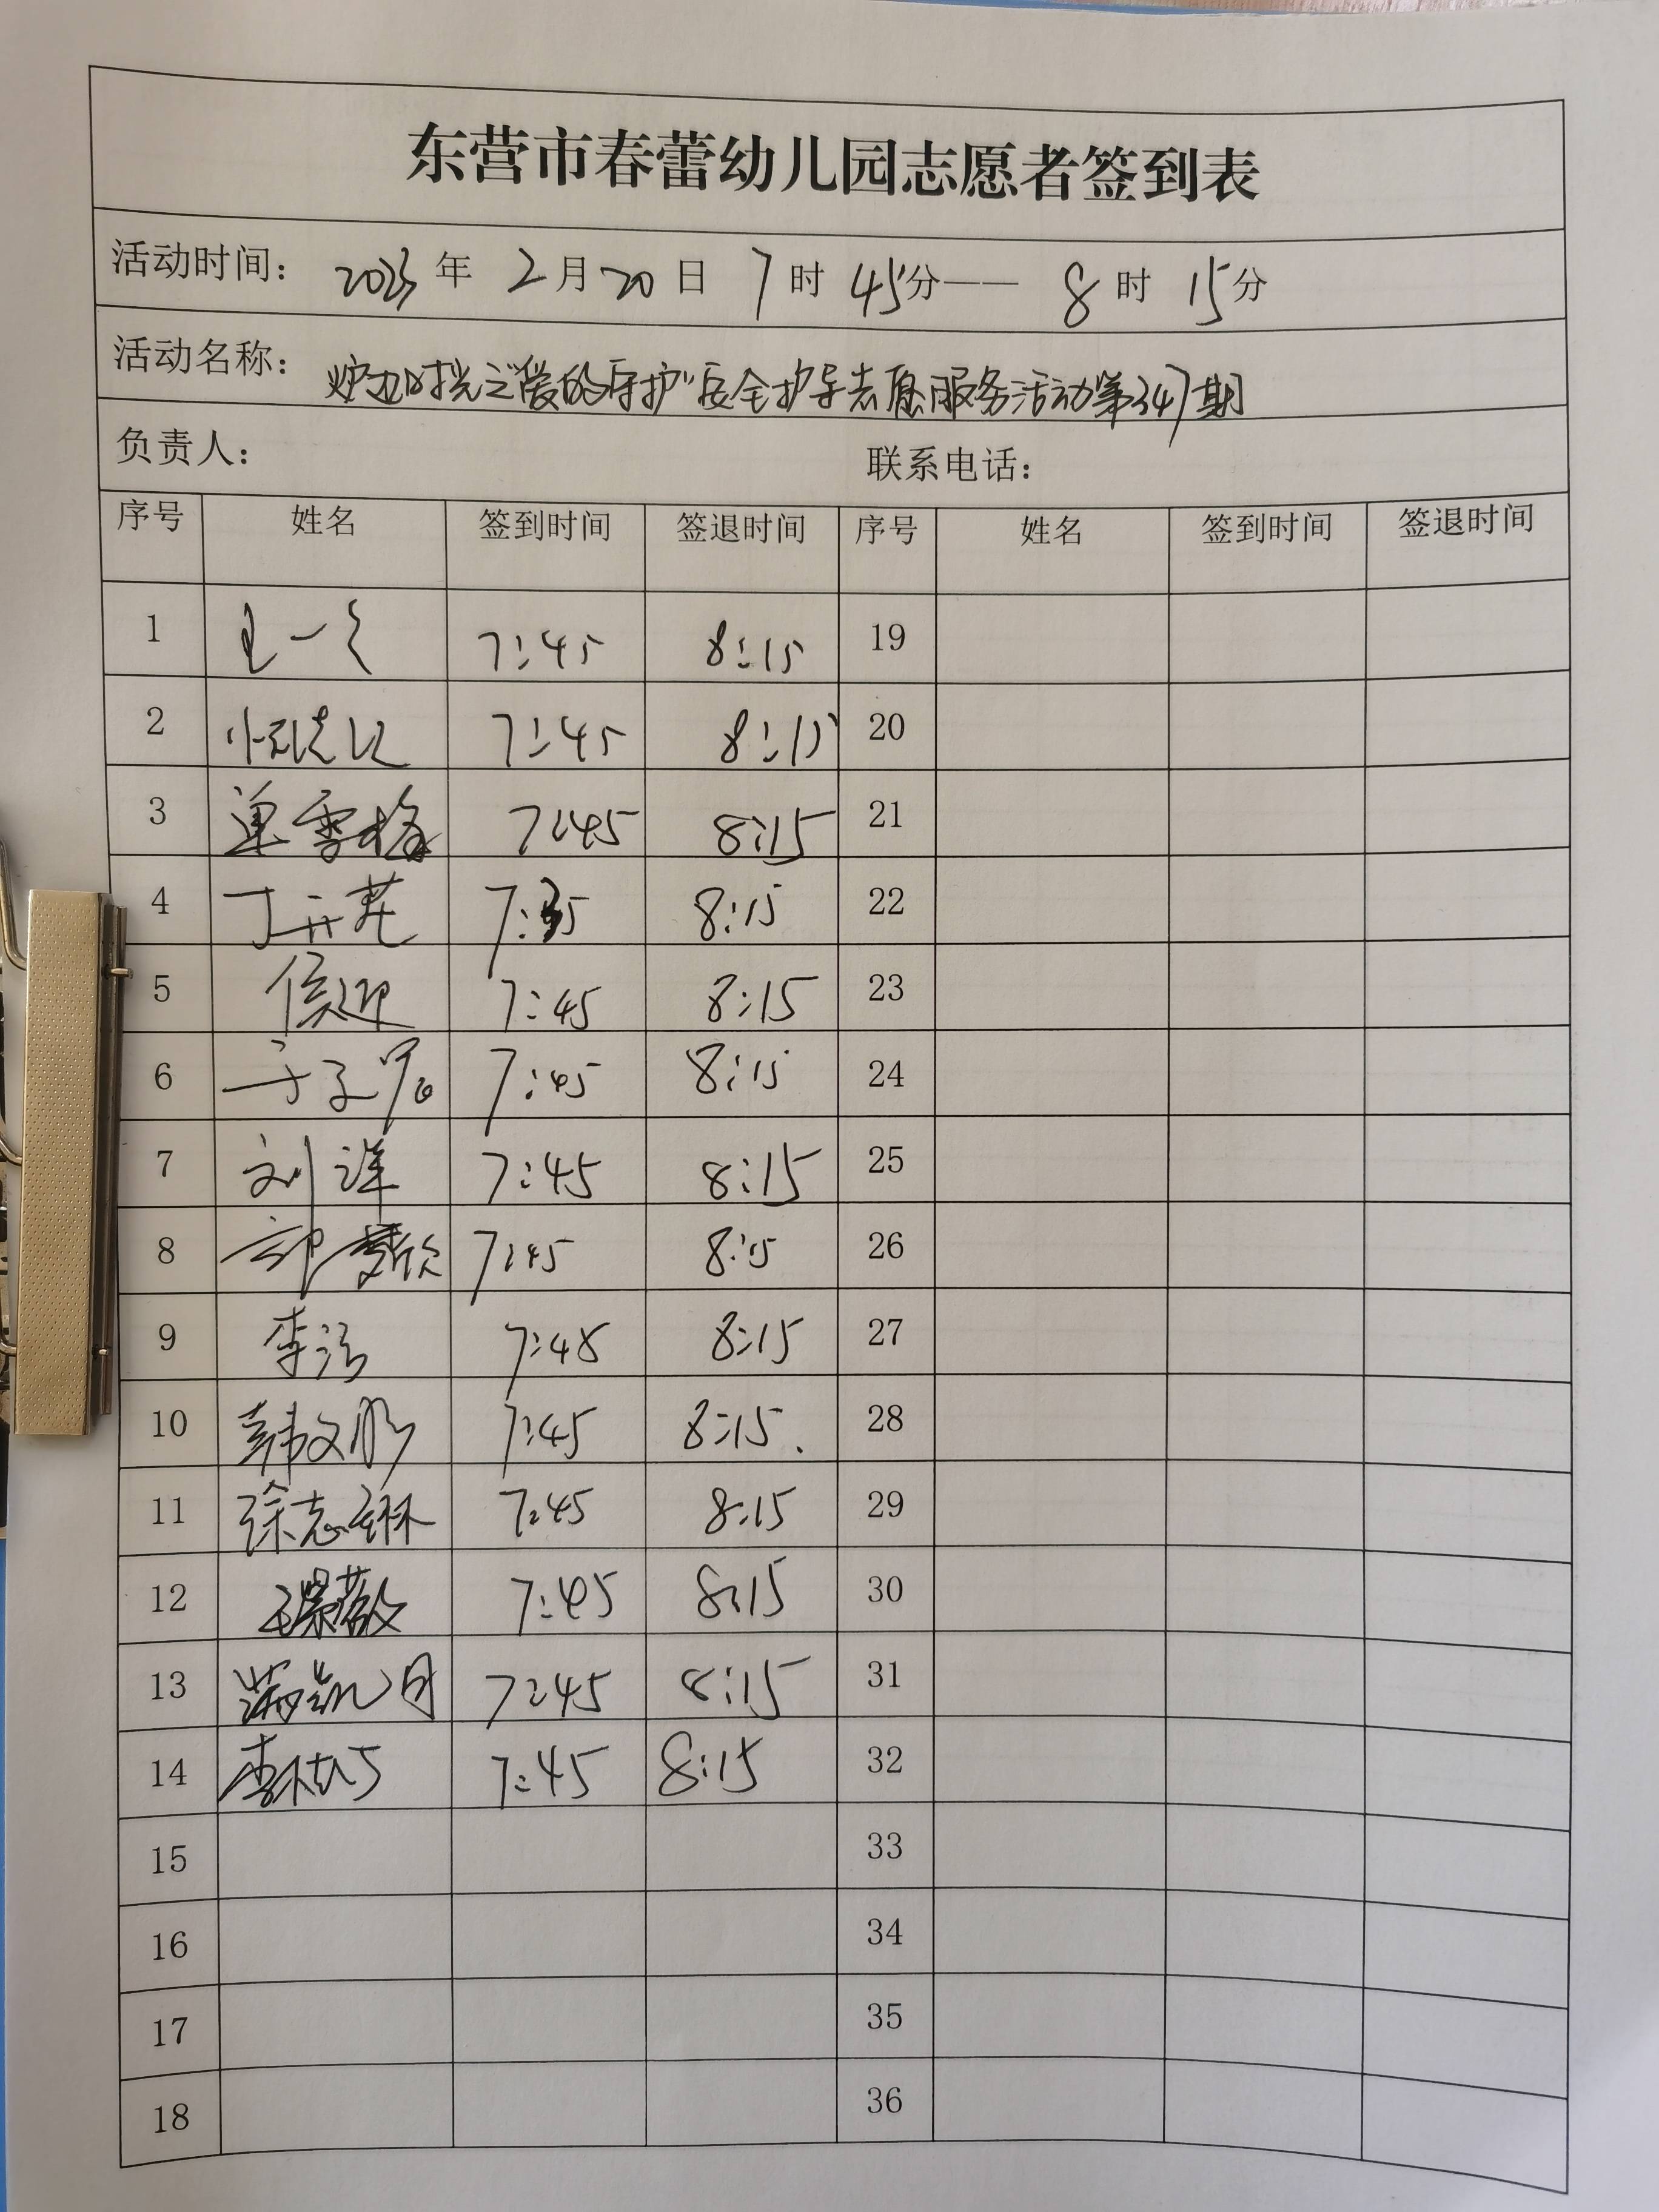 东营市春蕾幼儿园志愿者签到表
活动时间： 2023 年 2 月 20 日 7 时 45 分—— 8 时 15 分
活动名称： 炉边时光之"爱的守护"安全护导志愿服务活动第347期
负责人： 联系电话：
序号 姓名 签到时间 签退时间 序号 姓名 签到时间 签退时间
1 7:45 8:15 19
2 7:45 8:15 20
3 单雪梅 7:45 8:15 21
4 7:35 8:15 22
5 侯迎 7:45 8:15 23
6 7:45 8:15 24
7 刘洋 7:45 8:15 25
8 7:45 8:15 26
9 李洁 7:48 8:15 27
10 韩文彤 7:45 8:15. 28
11 徐志琳 7:45 8:15 29
12 7:45 8:15 30
13 满凯月 7:45 8:15 31
14 7:45 8:15 32
15 33
16 34
17 35
18 36